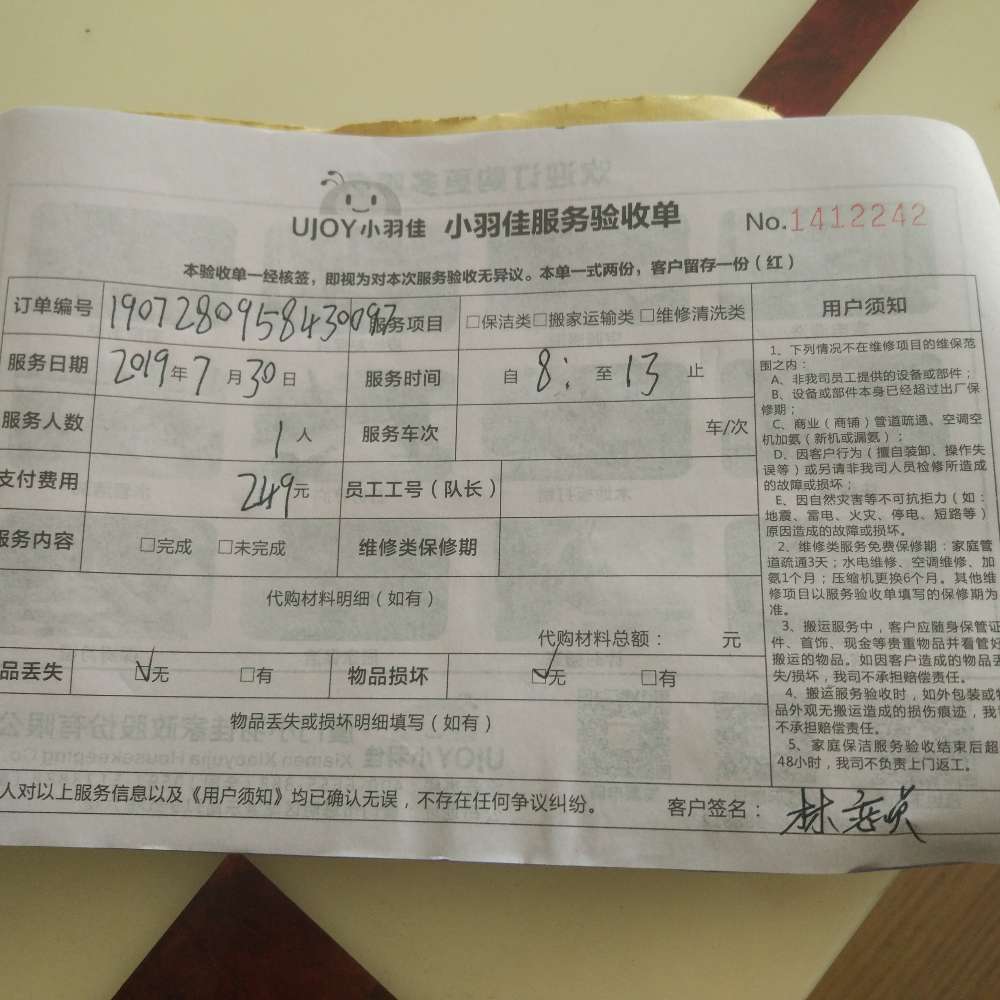 UJOY小羽佳 小羽佳服务验收单 No.1412242
本验收单一经核签，即视为对本次服务验收无异议。本单一式两份，客户留存一份（红）
订单编号 190728095843009 服务项目 □保洁类□搬家运输类 □维修清洗类
服务日期 2019年7月30日 服务时间 自 8: 至 13 止
服务人数 1人 服务车次 车/次
支付费用 249元 员工工号（队长）
服务内容 □完成 □未完成 维修类保修期
代购材料明细（如有）
代购材料总额： 元
品丢失 ☑无 □有 物品损坏 ☑无 □有
物品丢失或损坏明细填写（如有）
人对以上服务信息以及《用户须知》均已确认无误，不存在任何争议纠纷。 客户签名：林
用户须知
1、下列情况不在维修项目的维保范
围之内：
A、非我司员工提供的设备或部件；
B、设备或部件本身已经超过出厂保
修期；
C、商业（商铺）管道疏通、空调空
机加氨（新机或漏氨）；
D、因客户行为（擅自装卸、操作失
误等）或另请非我司人员检修所造成
的故障或损坏；
E、因自然灾害等不可抗拒力（如：
地震、雷电、火灾、停电、短路等）
原因造成的故障或损坏。
2、维修类服务免费保修期：家庭管
道疏通3天；水电维修、空调维修、加
氨1个月；压缩机更换6个月。其他维
修项目以服务验收单填写的保修期为
准。
3、搬运服务中，客户应随身保管证
件、首饰、现金等贵重物品并看管好
搬运的物品。如因客户造成的物品丢
失/损坏，我司不承担赔偿责任。
4、搬运服务验收时，如外包装或物
品外观无搬运造成的损伤痕迹，我
不承担赔偿责任。
5、家庭保洁服务验收结束后超
48小时，我司不负责上门返工。